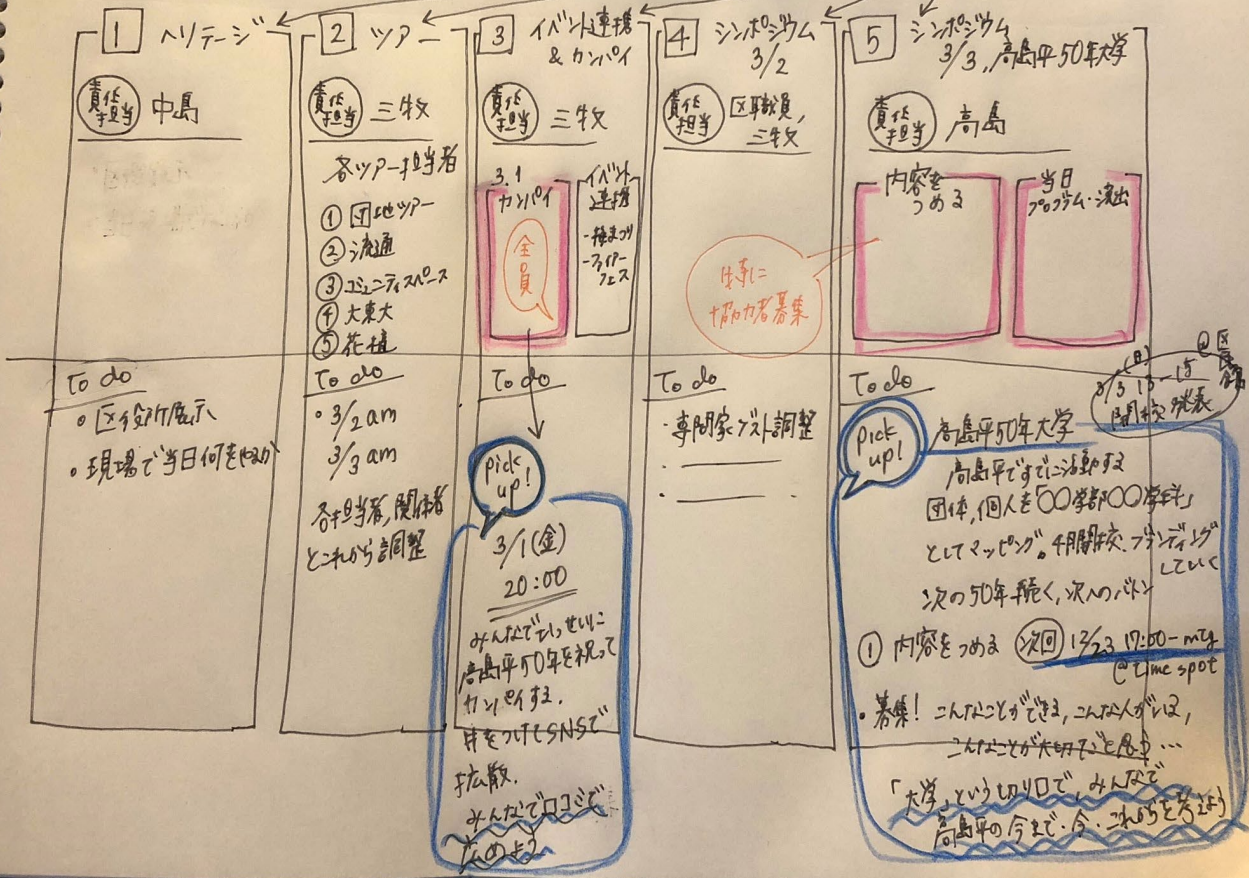 1 ヘリテージ
責任担当 中島
To do
・区役所展示
・現場で当日何をやるか
2 ツアー
責任担当 三牧
各ツアー担当者
①団地ツアー
②流通
③コミュニティスペース
④大東大
⑤花植
To do
・3/2 am
3/3 am
各担当者,関係者
とこれから調整
3 イベント連携
& カンパイ
責任担当 三牧
3.1
カンパイ
全員
イベント
連携
- 梅まつり
- ファイアー
フェス
To do
pick up!
3/1(金)
20:00
みんなでいっせいに
高島平50年を祝って
カンパイする.
#をつけてSNSで
拡散.
みんなで口コミで
広めよう
4 シンポジウム
3/2
責任担当 区職員,
三牧
特に
協力者募集
To do
・専門家ゲスト調整
5 シンポジウム
3/3,高島平50年大学
責任担当 高島
内容を
つめる
当日
プログラム・演出
To do
(日)
3/3 13-15
@区民館
開校発表
pick up!
高島平50年大学
高島平ですでに活動する
団体,個人を「〇〇学部〇〇学科」
としてマッピング。4月開校、ブランディング
していく
次の50年続く,次へのバトン
① 内容をつめる 次回 12/23 17:00-mtg
@time spot
・募集! こんなことができる,こんな人がいる,
こんなことが大切だと思う…
「大学」という切り口で,みんなで
高島平の今まで・今・これからを考えよう